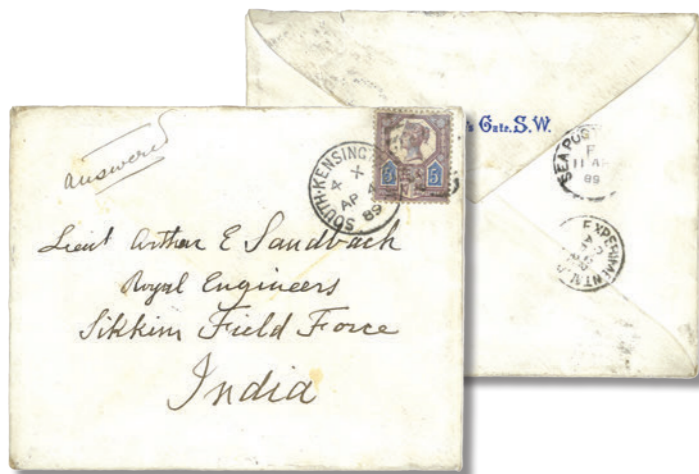 answered
SOUTH·KENSING
X
4
AP 4
89
5 5
Lieut Arthur E Sandbach
Royal Engineers
Sikkim Field Force
India
's Gate. S.W.
SEA POST
F
11 AP
89
EXPERIMENTAL P